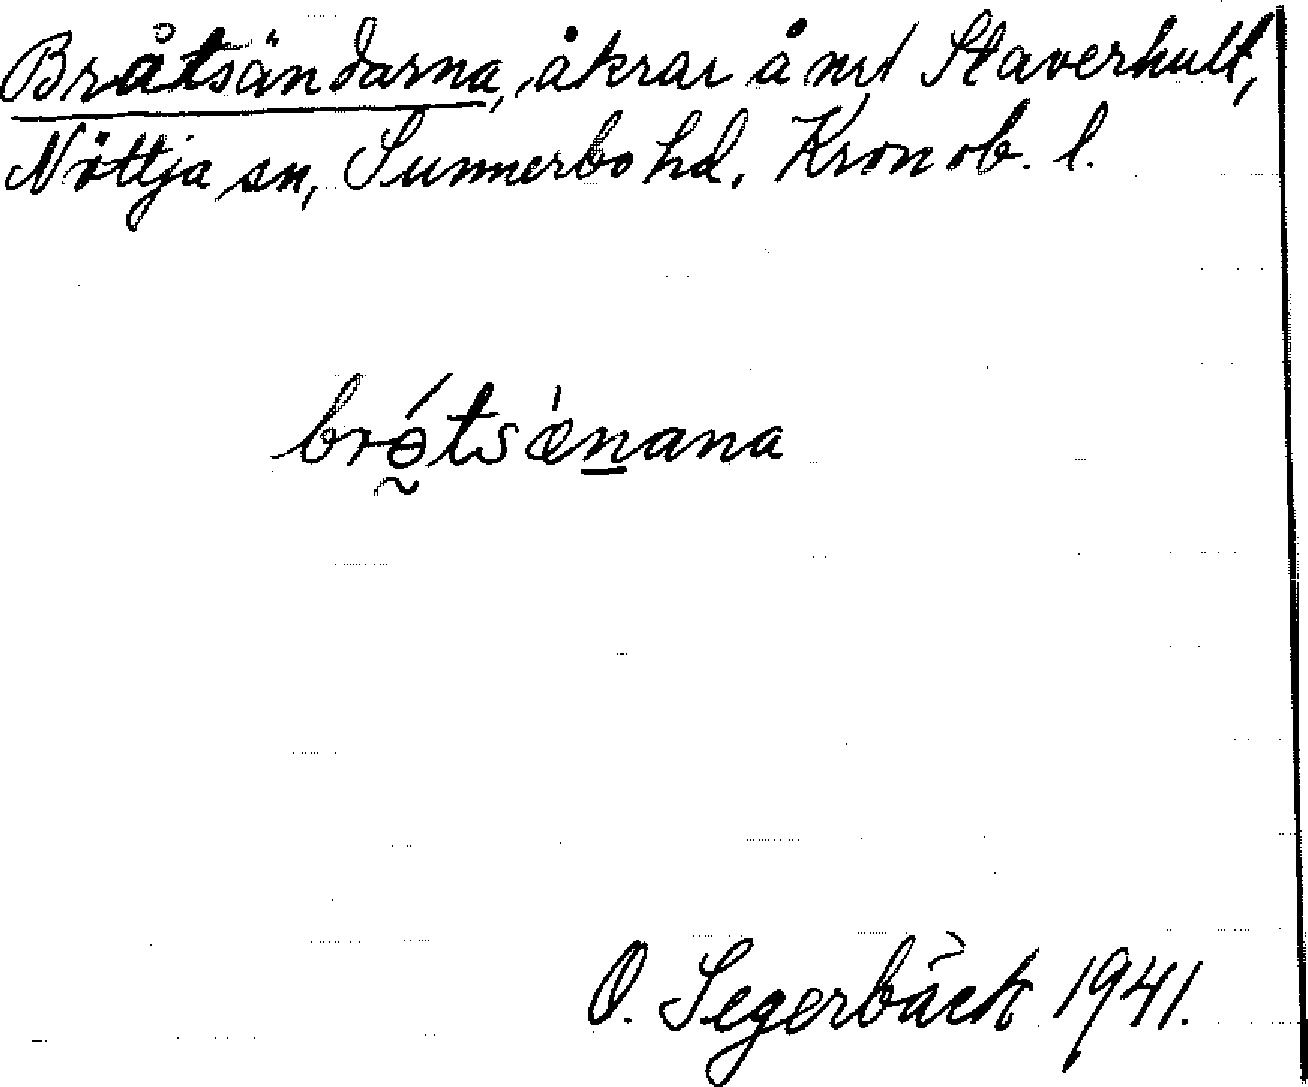 Bråtsändarna, åkrar å nr 1 Staverhult,
Nöttja sn, Sunnerbo hd. Kronob. l.
brɵ́tsǽnana
O. Segerbäck 1941.